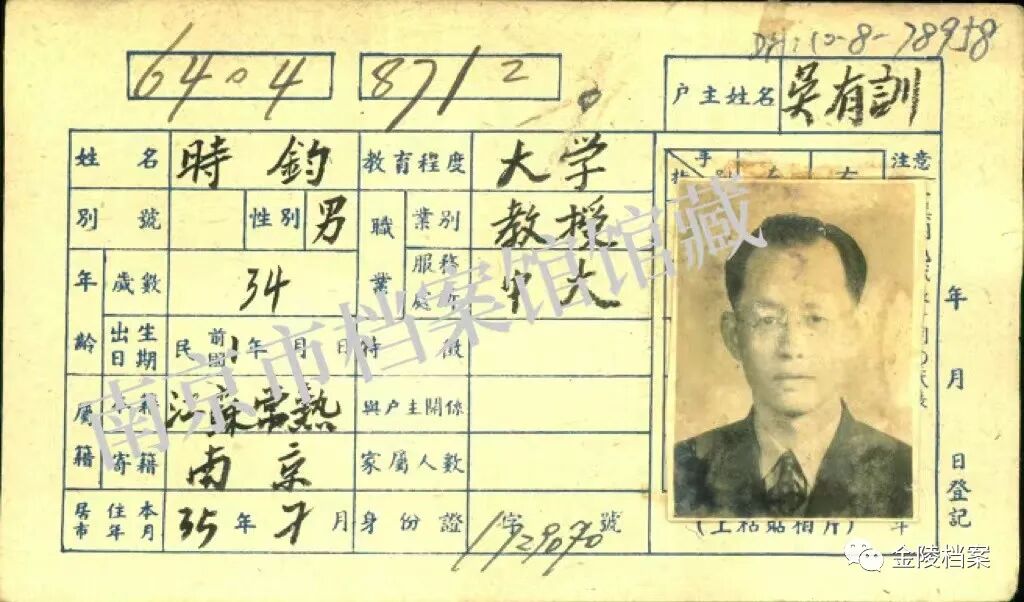 DH:10-8-78958
6404 8712
户主姓名 吳有訓
姓名 時鈞 教育程度 大学
別號 性別 男 職業 業別 教授
年齡 歲數 34 服務處所 中大
出生日期 民國前1年 月 日 特徵
屬籍 本籍 江蘇常熟 與户主關係
寄籍 南京 家屬人數
居住本市年月 35年 月 身份證 字 1929070 號
注意
年 月 日登記
南京市档案馆馆藏
金陵档案